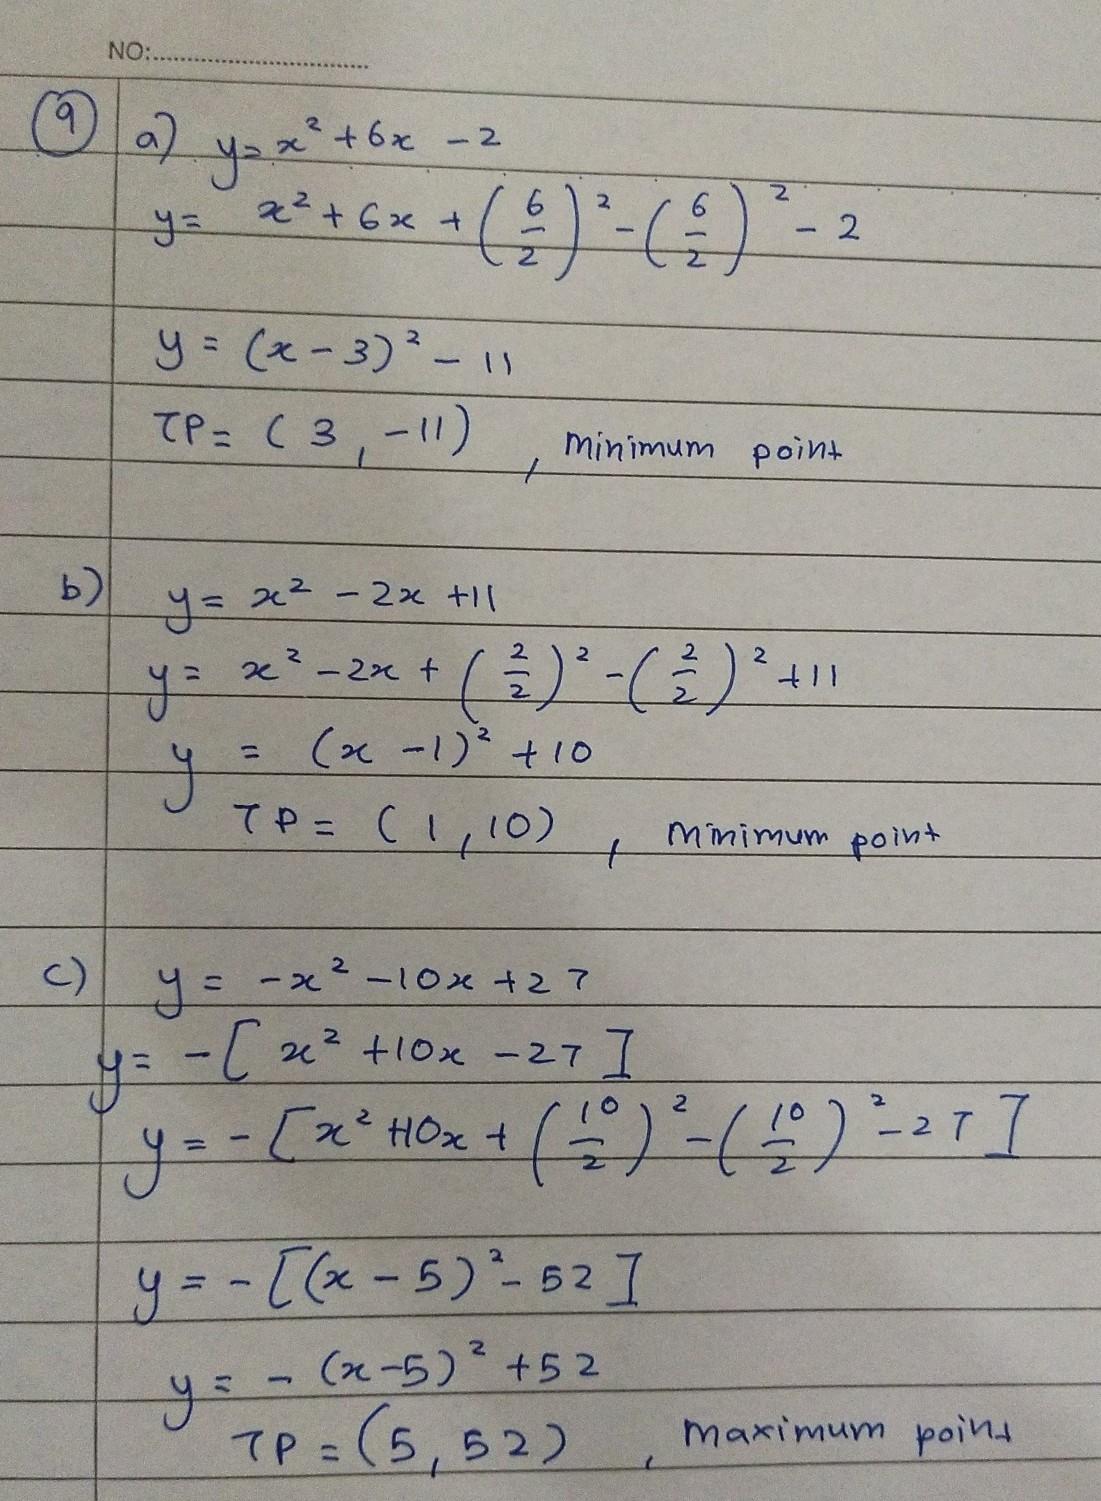 NO:..............................
⑨ a) y= x² + 6x - 2
y= x² + 6x + (6/2)² - (6/2)² - 2
y = (x - 3)² - 11
TP= (3, -11) , minimum point
b) y= x² - 2x +11
y= x² - 2x + (2/2)² - (2/2)² +11
y = (x - 1)² + 10
TP= (1, 10) , minimum point
c) y= -x² - 10x + 27
y= -[x² +10x - 27]
y= -[x² +10x + (10/2)² - (10/2)² - 27]
y = -[(x - 5)² - 52]
y= - (x-5)² + 52
TP = (5, 52) , maximum point